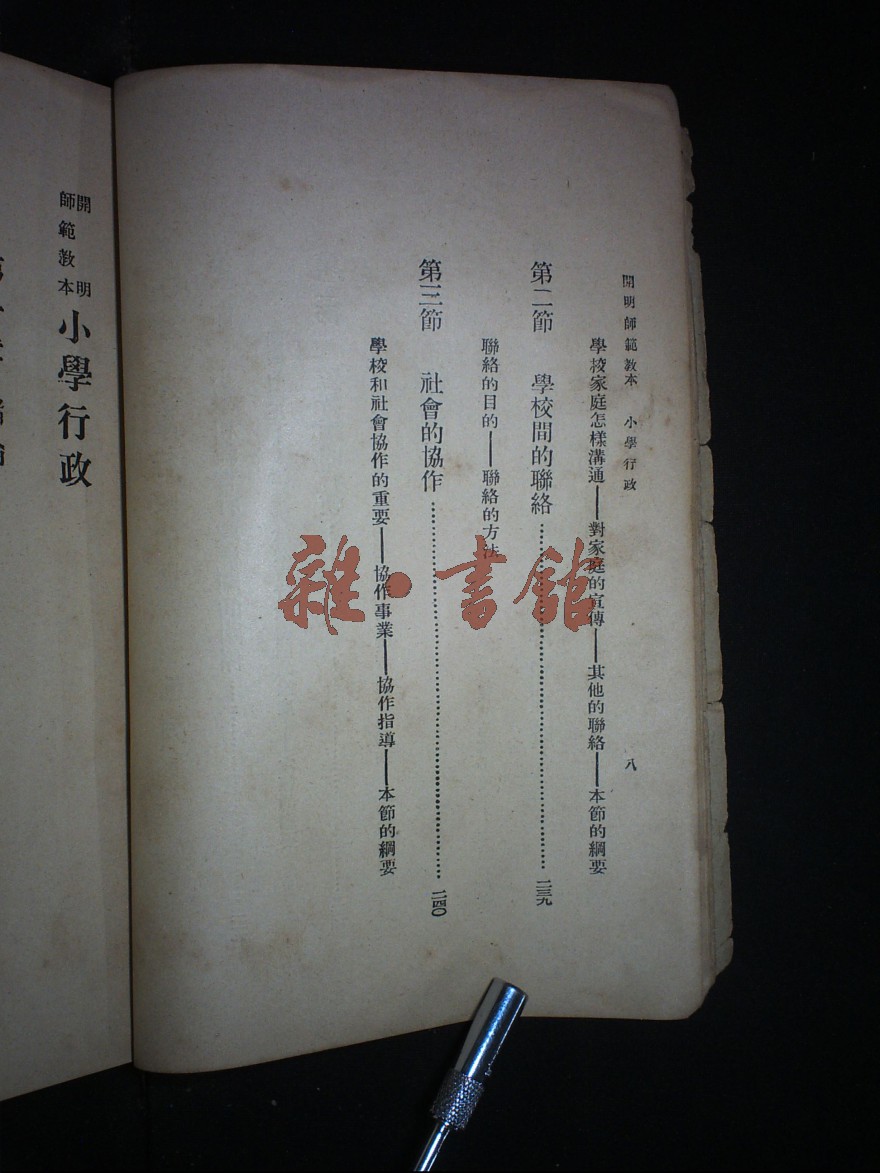 開明師範教本 小學行政 八
學校家庭怎樣溝通——對家庭的宣傳——其他的聯絡——本節的綱要
第二節 學校間的聯絡……………………二三九
聯絡的目的——聯絡的方法
第三節 社會的協作……………………二四〇
學校和社會協作的重要——協作事業——協作指導——本節的綱要
雜·書館
開明
師範教本
小學行政